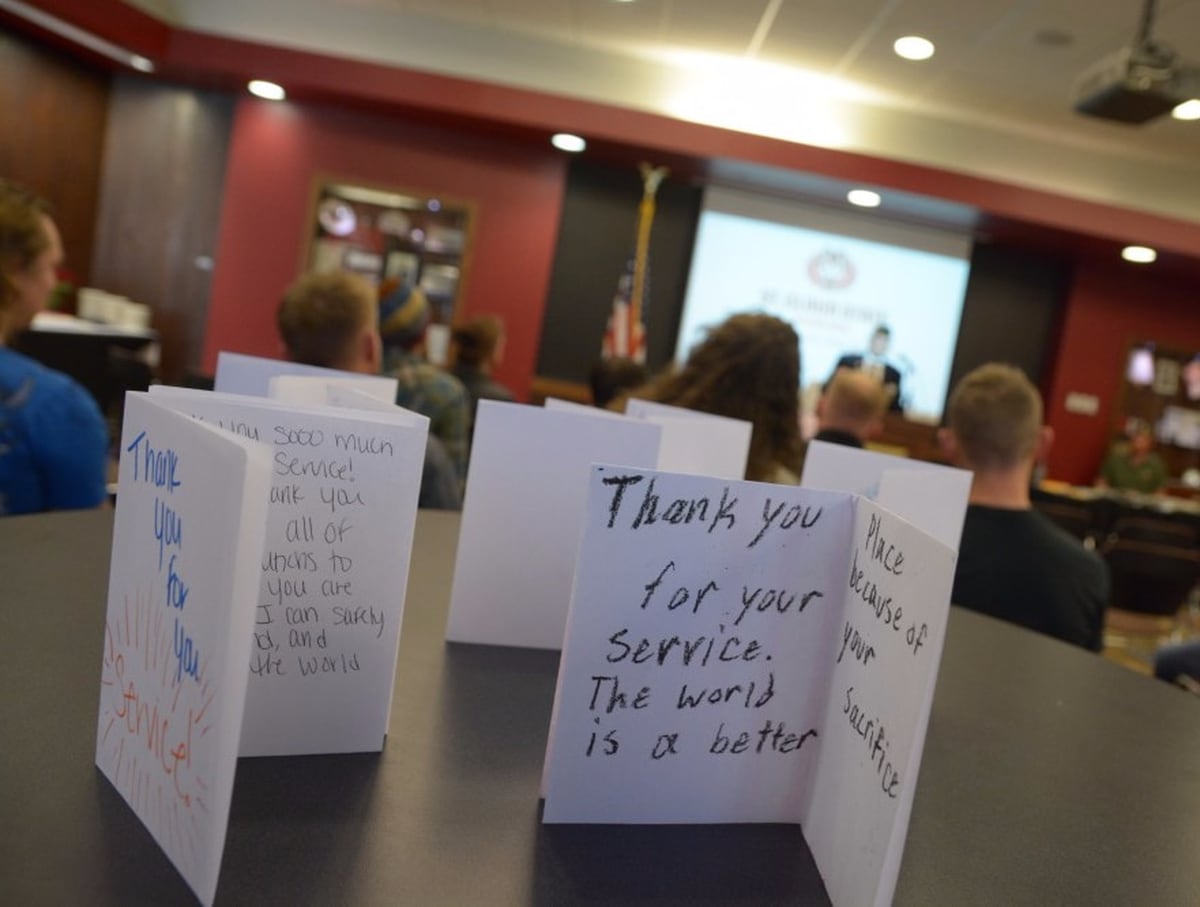 Thank
you
for
you
Service!
you sooo much
Service!
you
all of
to
you are
I can safely
and
the world
Thank you
for your
service.
The world
is a better
Place
because of
your
sacrifice